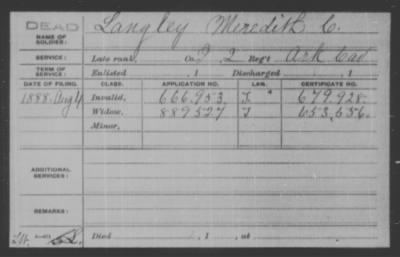 DEAD
NAME OF SOLDIER: Langley Meredith C.
SERVICE: Late rank, Co. 2 Reg't Ark Cav
TERM OF SERVICE: Enlisted , 1 Discharged , 1
DATE OF FILING. CLASS. APPLICATION NO. LAW. CERTIFICATE NO.
1888. Aug 4 Invalid, 666.953 679.928.
Widow, 889527 653,656.
Minor,
ADDITIONAL SERVICES:
REMARKS:
Died , 1 , at